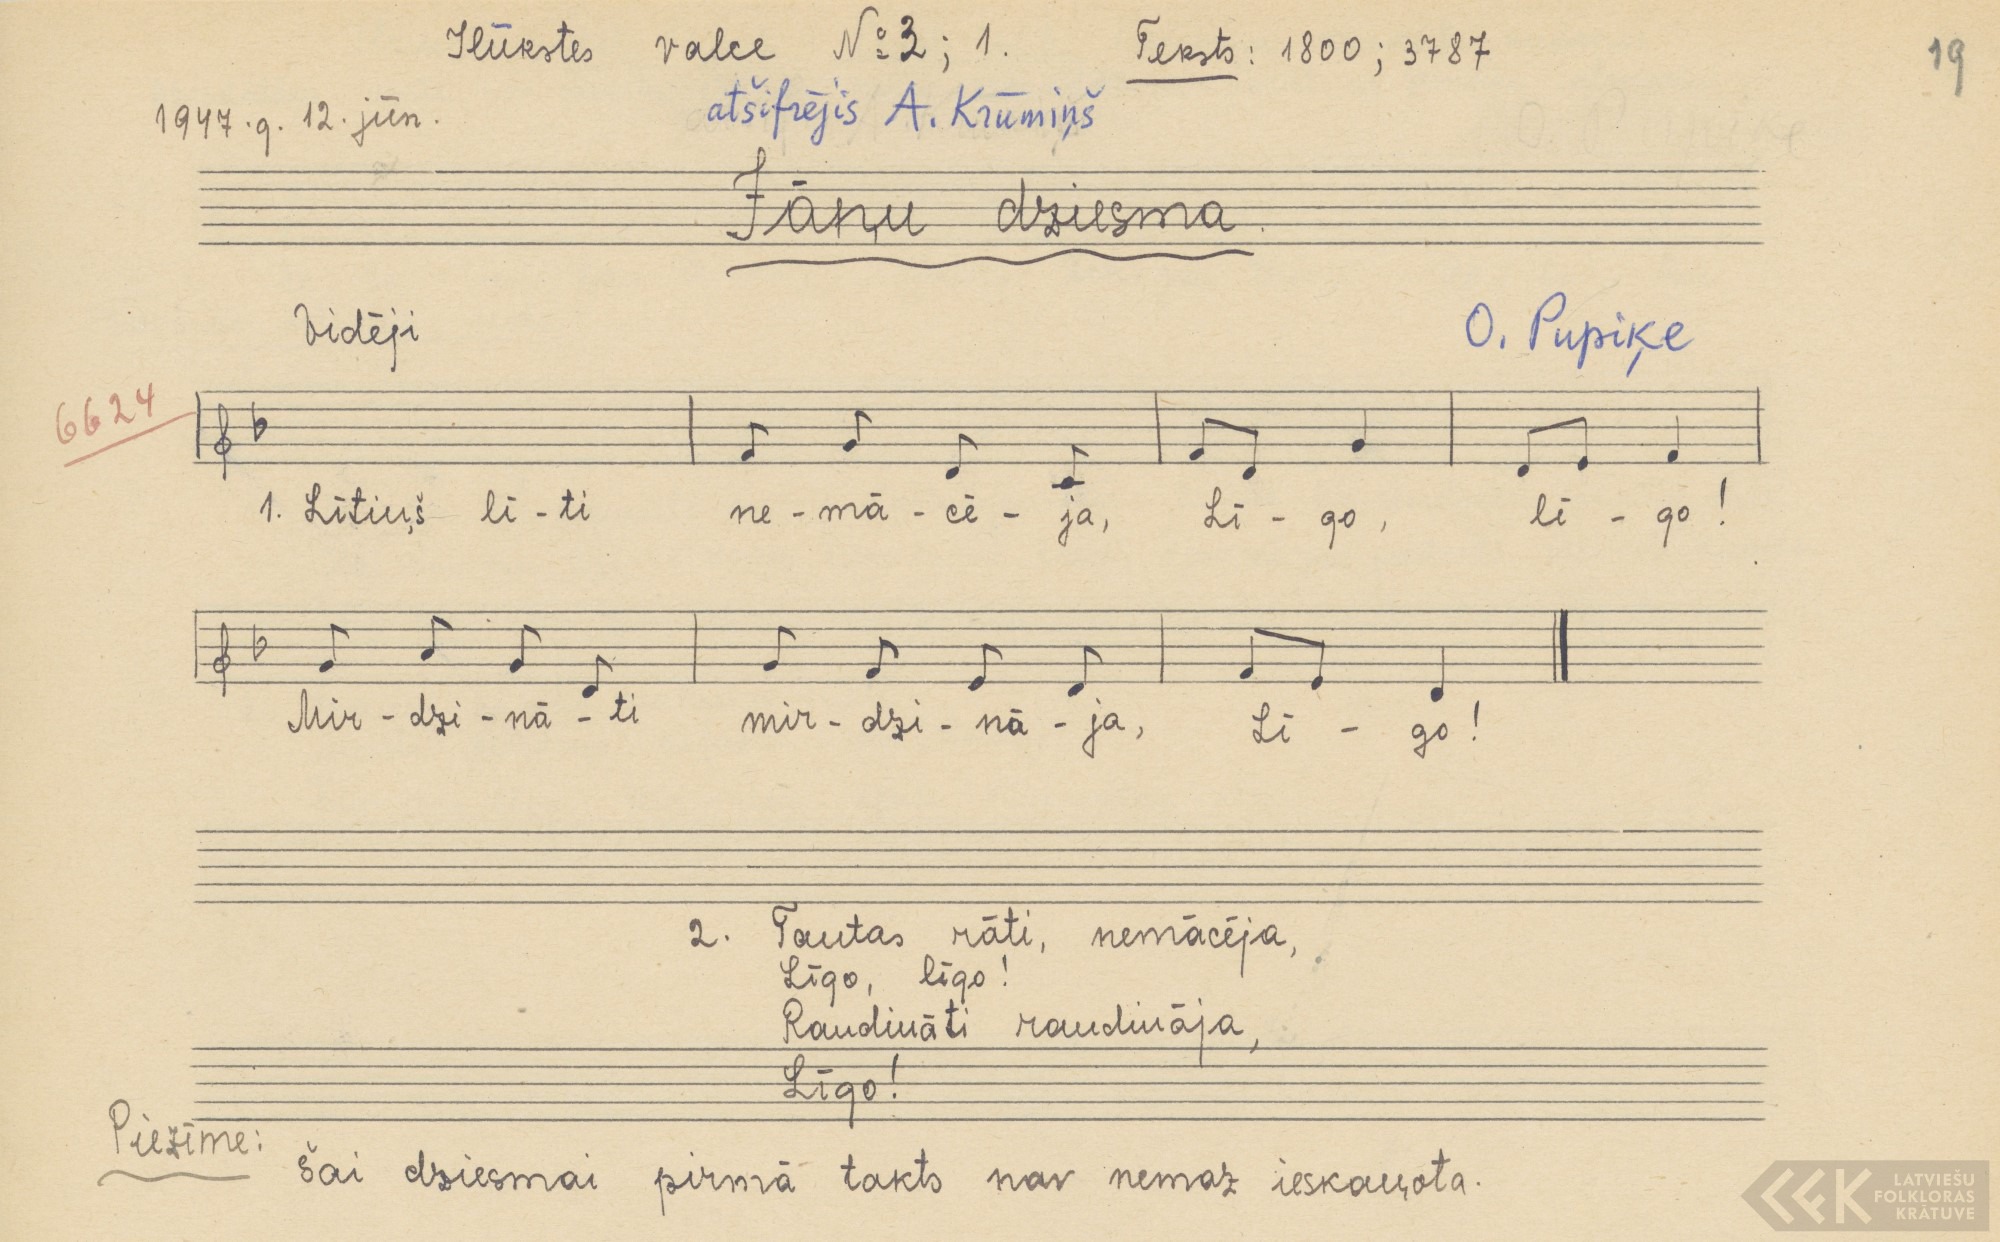 Ilūkstes valce № 3; 1. Teksts: 1800; 3787
19
1947.g. 12. jūn. atšifrējis A. Krūmiņš
Jāņu dziesma.
Vidēji
O. Pupiķe
6624
1. Lītiņš lī - ti ne - mā - cē - ja, Lī - go, lī - go!
Mir - dzi - nā - ti mir - dzi - nā - ja, Lī - go!
2. Tautas rāti, nemācēja,
Līgo, līgo!
Raudināti raudināja,
Līgo!
Piezīme:
šai dziesmai pirmā takts nav nemaz ieskaņota.
LATVIEŠU
FOLKLORAS
KRĀTUVE